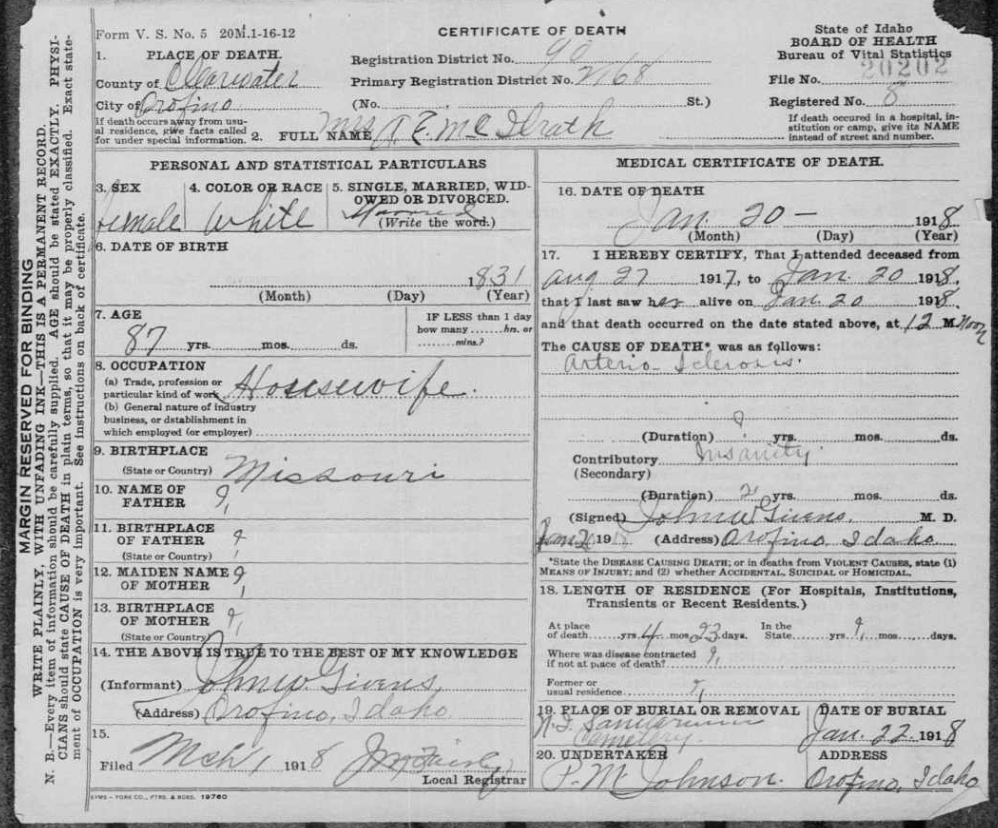 Form V. S. No. 5 20M.1-16-12
CERTIFICATE OF DEATH
State of Idaho
BOARD OF HEALTH
Bureau of Vital Statistics
20202
File No.
Registered No. 8
If death occurred in a hospital, in-
stitution or camp, give its NAME
instead of street and number.
1. PLACE OF DEATH
County of Clearwater
City of Orofino
If death occurs away from usu-
al residence, give facts called
for under special information.
Registration District No. 90
Primary Registration District No. 2168
(No. St.)
2. FULL NAME Mrs A. E. McIlrath
MARGIN RESERVED FOR BINDING
WRITE PLAINLY, WITH UNFADING INK—THIS IS A PERMANENT RECORD.
N. B.—Every item of information should be carefully supplied. AGE should be stated EXACTLY. PHYSI-
CIANS should state CAUSE OF DEATH in plain terms, so that it may be properly classified. Exact state-
ment of OCCUPATION is very important. See instructions on back of certificate.
PERSONAL AND STATISTICAL PARTICULARS
3. SEX
female
4. COLOR OR RACE
White
5. SINGLE, MARRIED, WID-
OWED OR DIVORCED.
Married
(Write the word.)
6. DATE OF BIRTH
1831
(Month) (Day) (Year)
7. AGE
87 yrs. mos. ds.
IF LESS than 1 day
how many hrs. or
mins.?
8. OCCUPATION
(a) Trade, profession or
particular kind of work Housewife.
(b) General nature of industry
business, or dstablishment in
which employed (or employer)
9. BIRTHPLACE
(State or Country) Missouri
10. NAME OF
FATHER ?
11. BIRTHPLACE
OF FATHER ?
(State or Country)
12. MAIDEN NAME
OF MOTHER ?
13. BIRTHPLACE
OF MOTHER ?
(State or Country)
14. THE ABOVE IS TRUE TO THE BEST OF MY KNOWLEDGE
(Informant) John W. Givens,
(Address) Orofino, Idaho
15.
Filed Mch 1, 1918 J M Fairly
Local Registrar
SYMS-YORK CO., PTRS. & BDRS. 19760
MEDICAL CERTIFICATE OF DEATH.
16. DATE OF DEATH
Jan. 20 - 1918
(Month) (Day) (Year)
17. I HEREBY CERTIFY, That I attended deceased from
Aug 27 1917, to Jan. 20 1918.
that I last saw her alive on Jan. 20 1918.
and that death occurred on the date stated above, at 12 M. Noon
The CAUSE OF DEATH* was as follows:
Arterio-Sclerosis.
(Duration) ? yrs. mos. ds.
Contributory Insanity
(Secondary)
(Duration) 2 yrs. mos. ds.
(Signed) John W Givens. M. D.
19 (Address) Orofino Idaho
*State the DISEASE CAUSING DEATH; or in deaths from VIOLENT CAUSES, state (1)
MEANS OF INJURY; and (2) whether ACCIDENTAL, SUICIDAL or HOMICIDAL.
18. LENGTH OF RESIDENCE (For Hospitals, Institutions,
Transients or Recent Residents.)
At place
of death yrs. 4 mos 23 days.
In the
State yrs. ? mos. days.
Where was disease contracted
if not at place of death? ?
Former or
usual residence ?
19. PLACE OF BURIAL OR REMOVAL
N. I. Sanitarium
Cemetery.
DATE OF BURIAL
Jan. 22 1918
20. UNDERTAKER
P. M. Johnson.
ADDRESS
Orofino, Idaho